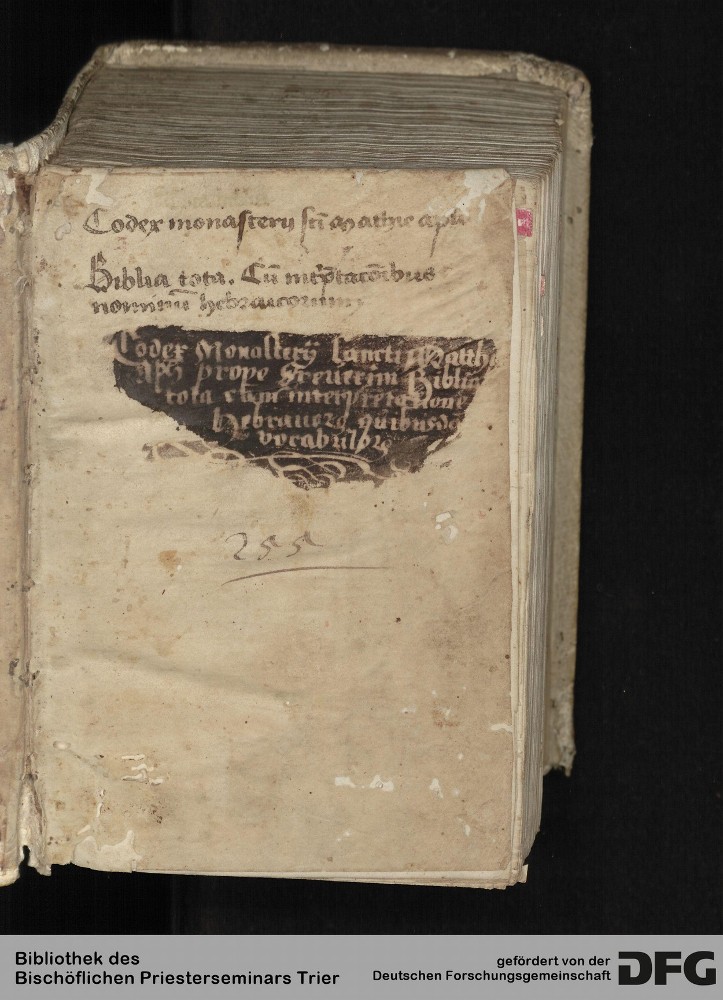 Codex monasterij sc̄i Mathie apl̄i
Biblia tota. Cū int̄p̄tacōibus
nominū hebraicorum
Codex Monasterij sancti Matthi
apl̄i prope Treuerim Biblia
tota cum interpretatione
Hebraicorꝫ quibusdā
vocabulorꝫ
255
Bibliothek des
Bischöflichen Priesterseminars Trier
gefördert von der
Deutschen Forschungsgemeinschaft
DFG